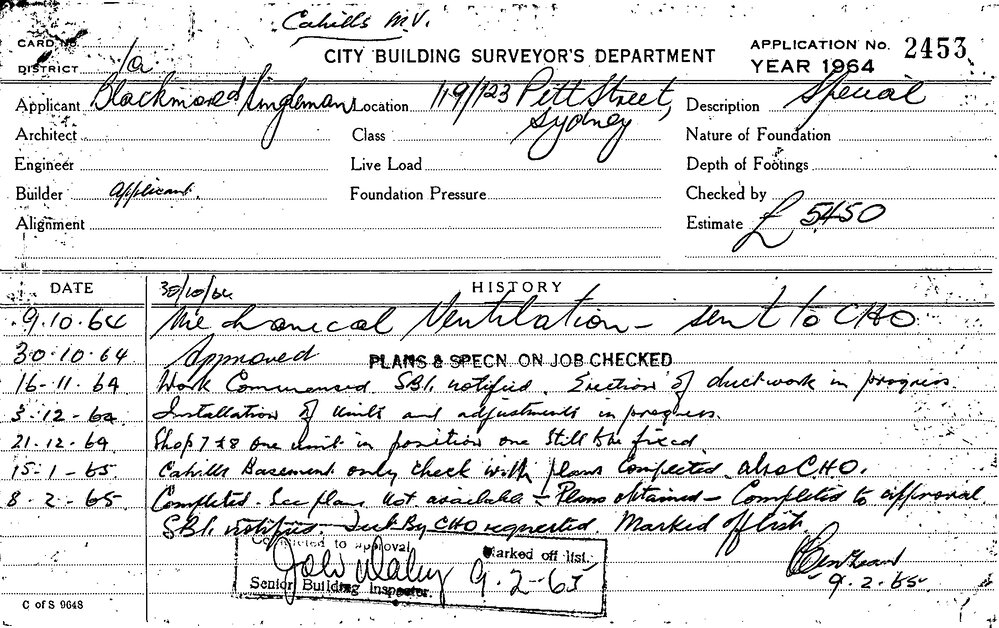 Cahills M.V.
CARD No.
DISTRICT 1a
CITY BUILDING SURVEYOR'S DEPARTMENT
APPLICATION No. 2453
YEAR 1964
Applicant Location 119/123 Pitt Street, Sydney
Description Special
Architect
Class
Nature of Foundation
Engineer
Live Load
Depth of Footings
Builder Applicant.
Foundation Pressure
Checked by
Alignment
Estimate £ 5450
DATE
HISTORY
30/10/64
9.10.64 Mechanical Ventilation - sent to CHO
30.10.64 Approved PLANS & SPECN. ON JOB CHECKED
16-11-64 Work Commenced. SBI. notified. Erection of ductwork in progress.
3-12-64 Installation of Units and adjustments in progress.
21.12.64 Shop 7 & 8 one unit in position one still to be fixed
15-1-65 Cahills Basement only check with plans Completed also CHO.
8-2-65 Completed. See plans Not available - Plans obtained - Completed to approval
SBI. notified By CHO requested. Marked off list.
Completed to approval
Marked off list.
9-2-65
Senior Building Inspector.
9.2.65
C of S 9648